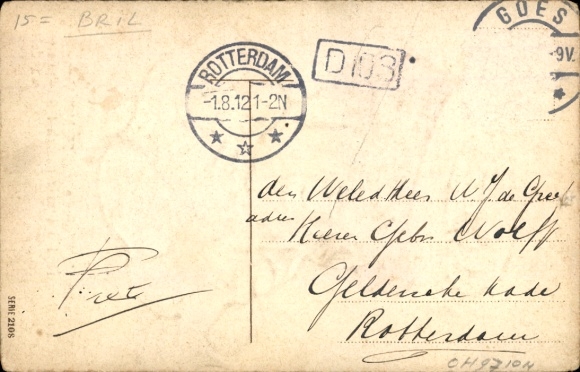 15= BRIL
GOES
9V.
ROTTERDAM
-1.8.12 1-2N
D 108
den Weled Heer N. J. de Graaf
adres Heeren Gebr. Wolff
Geldersche kade
Rotterdam
SERIE 2108
OH9710N